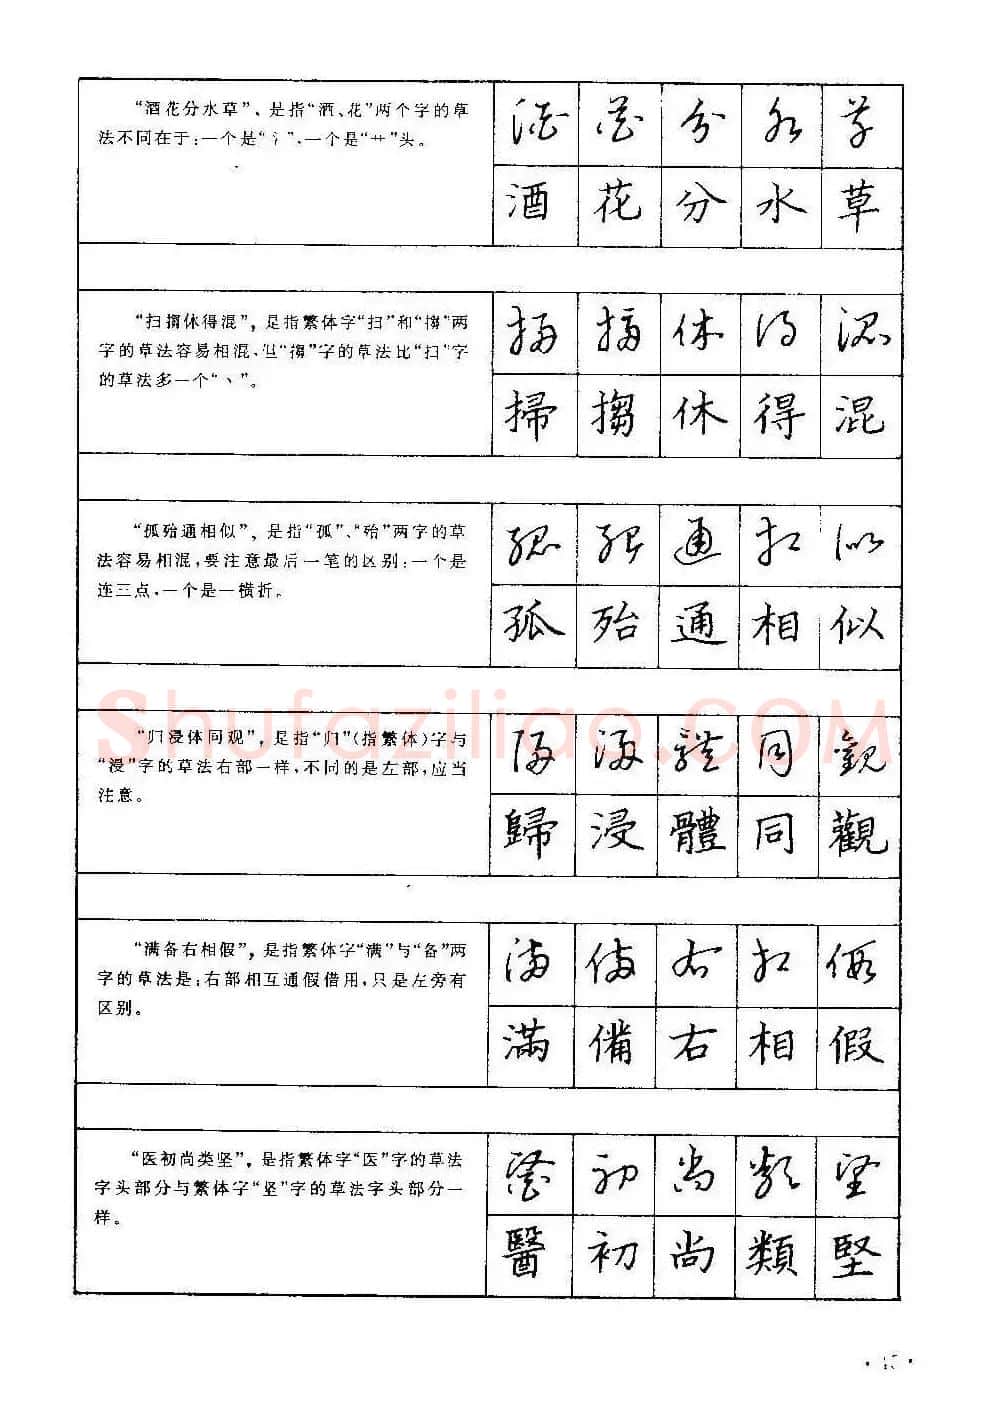 “酒花分水草”、是指“酒、花”两个字的草
法不同在于:一个是“氵”,一个是“艹”头。
酒 花 分 水 草
酒 花 分 水 草
“扫搊休得混”, 是指繁体字“扫”和“搊”两
字的草法容易相混、但“搊”字的草法比“扫”字
的草法多一个“丶”。
掃 搊 休 得 混
掃 搊 休 得 混
“孤殆通相似”, 是指“孤”、“殆”两字的草
法容易相混,要注意最后一笔的区别:一个是
连三点,一个是一横折。
孤 殆 通 相 似
孤 殆 通 相 似
Shufaziliao.COM
“归浸体同观”, 是指“归”(指繁体)字与
“浸”字的草法右部一样,不同的是左部,应当
注意。
歸 浸 體 同 觀
歸 浸 體 同 觀
“满备右相假”, 是指繁体字“满”与“备”两
字的草法是:右部相互通假借用,只是左旁有
区别。
滿 備 右 相 假
滿 備 右 相 假
“医初尚类坚”, 是指繁体字“医”字的草法
字头部分与繁体字“坚”字的草法字头部分一
样。
醫 初 尚 類 堅
醫 初 尚 類 堅